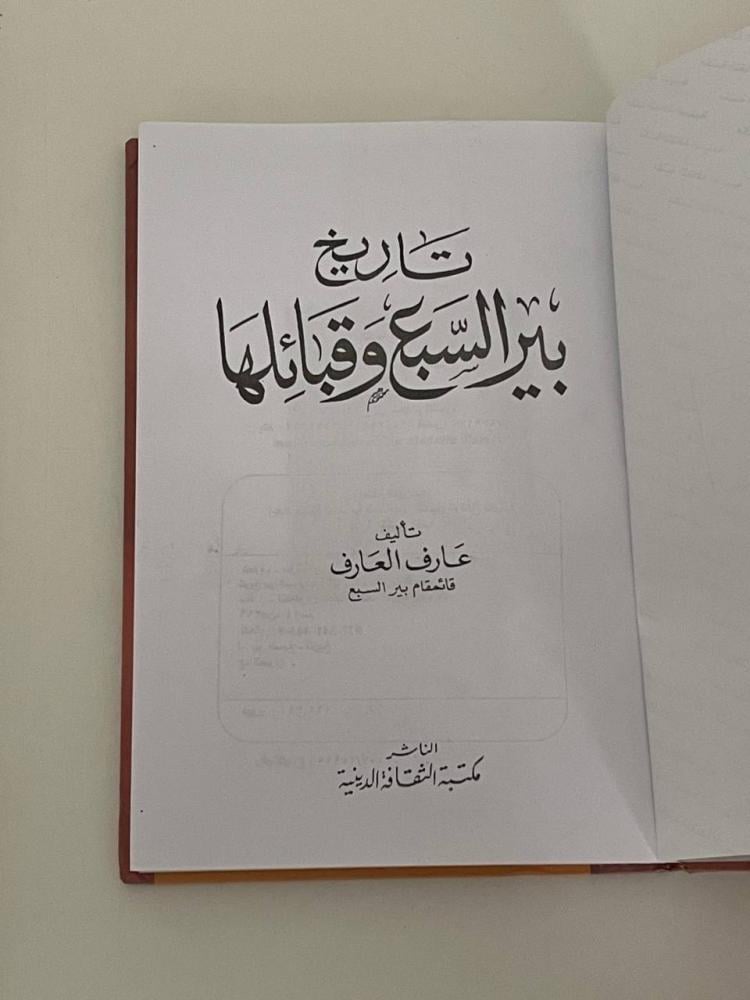 تاريخ
بير السبع وقبائلها
تأليف
عارف العارف
قائمقام بير السبع
الناشر
مكتبة الثقافة الدينية